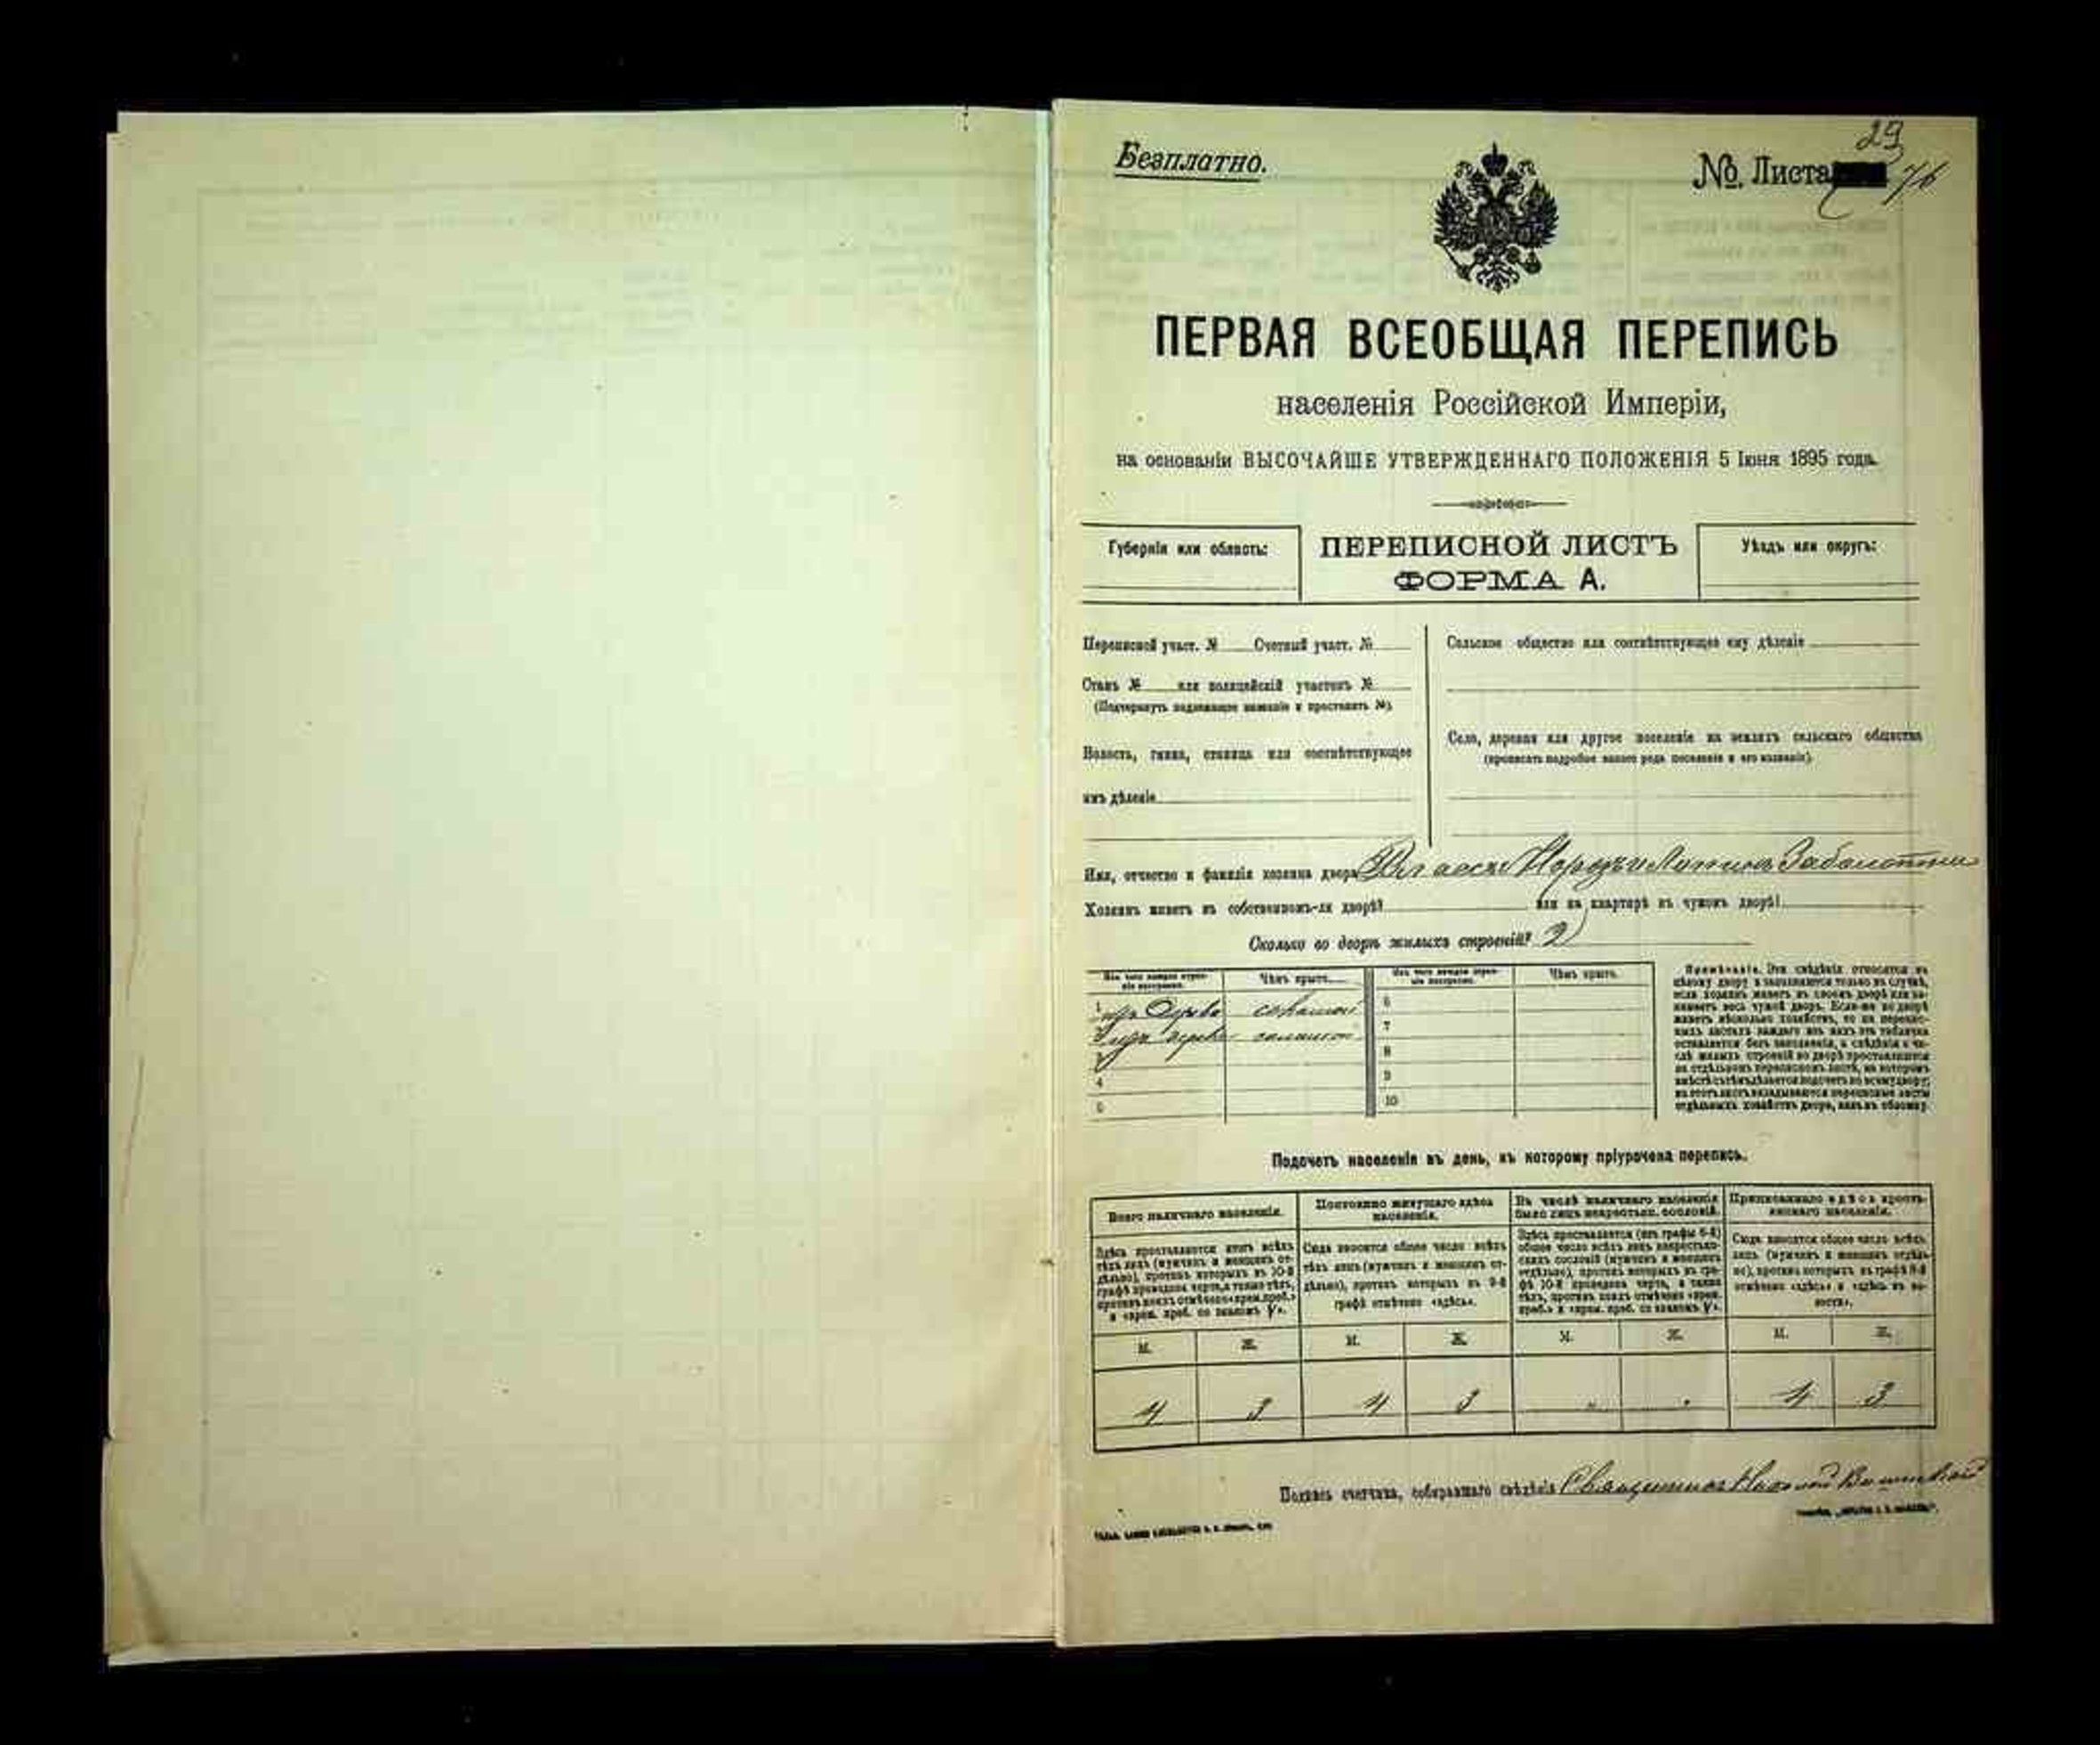 Безплатно.
29
№. Листа 76
ПЕРВАЯ ВСЕОБЩАЯ ПЕРЕПИСЬ
населенія Россійской Имперіи,
на основаніи ВЫСОЧАЙШЕ УТВЕРЖДЕННАГО ПОЛОЖЕНІЯ 5 Іюня 1895 года.
Губернія или область:
ПЕРЕПИСНОЙ ЛИСТЪ
ФОРМА А.
Уѣздъ или округъ:
Переписной участ. № Счетный участ. №
Станъ № или полицейскій участокъ №
(Подчеркнуть надлежащее названіе и проставить №).
Волость, гмина, станица или соотвѣтствующее
имъ дѣленіе
Сельское общество или соотвѣтствующее ему дѣленіе
Село, деревня или другое поселеніе на земляхъ сельскаго общества
(прописать подробно какого рода поселеніе и его названіе).
Имя, отчество и фамилія хозяина двора
Хозяинъ живетъ въ собственномъ-ли дворѣ? или на квартирѣ въ чужомъ дворѣ?
Сколько во дворѣ жилыхъ строеній? 2
Изъ чего каждое строеніе построено.
Чѣмъ крыто.
Изъ чего каждое строеніе построено.
Чѣмъ крыто.
1 изъ дерева соломой
2 изъ дерева соломой
3
4
5
6
7
8
9
10
Примѣчаніе. Эти свѣдѣнія относятся къ
цѣлому двору и заполняются только въ случаѣ,
если хозяинъ живетъ въ своемъ дворѣ или за-
нимаетъ весь чужой дворъ. Если-же во дворѣ
живетъ нѣсколько хозяйствъ, то на перепис-
ныхъ листахъ каждаго изъ нихъ эта табличка
оставляется безъ заполненія, а свѣдѣнія о чи-
слѣ жилыхъ строеній во дворѣ проставляются
на отдѣльномъ переписномъ листѣ, на которомъ
вмѣстѣ съ тѣмъ дѣлается подсчетъ по всему двору;
въ этотъ листъ вкладываются переписные листы
отдѣльныхъ хозяйствъ двора, какъ въ обложку.
Подсчетъ населенія въ день, къ которому пріурочена перепись.
Всего наличнаго населенія.
Постоянно живущаго здѣсь
населенія.
Въ числѣ наличнаго населенія
было лицъ некрестьян. сословій.
Приписаннаго здѣсь кресть-
янскаго населенія.
Здѣсь проставляется итогъ всѣхъ
тѣхъ лицъ (мужчинъ и женщинъ от-
дѣльно), противъ которыхъ въ 10-й
графѣ проведена черта, а также тѣхъ,
противъ коихъ отмѣчено «врем. преб.»
и «врем. преб. со знакомъ V».
Сюда вносится общее число всѣхъ
тѣхъ лицъ (мужчинъ и женщинъ от-
дѣльно), противъ которыхъ въ 9-й
графѣ отмѣчено «здѣсь».
Здѣсь проставляется (изъ графы 6-й)
общее число всѣхъ лицъ некрестьян-
скихъ сословій (мужчинъ и женщинъ
отдѣльно), противъ которыхъ въ гра-
фѣ 10-й проведена черта, а также
тѣхъ, противъ коихъ отмѣчено «врем.
преб.» и «врем. преб. со знакомъ V».
Сюда вносится общее число всѣхъ
лицъ (мужчинъ и женщинъ отдѣль-
но), противъ которыхъ въ графѣ 8-й
отмѣчено «здѣсь» и «здѣсь въ во-
лости».
М. Ж. М. Ж. М. Ж. М. Ж.
4 3 4 3 " " 4 3
Подпись счетчика, собиравшаго свѣдѣнія Священникъ Николай